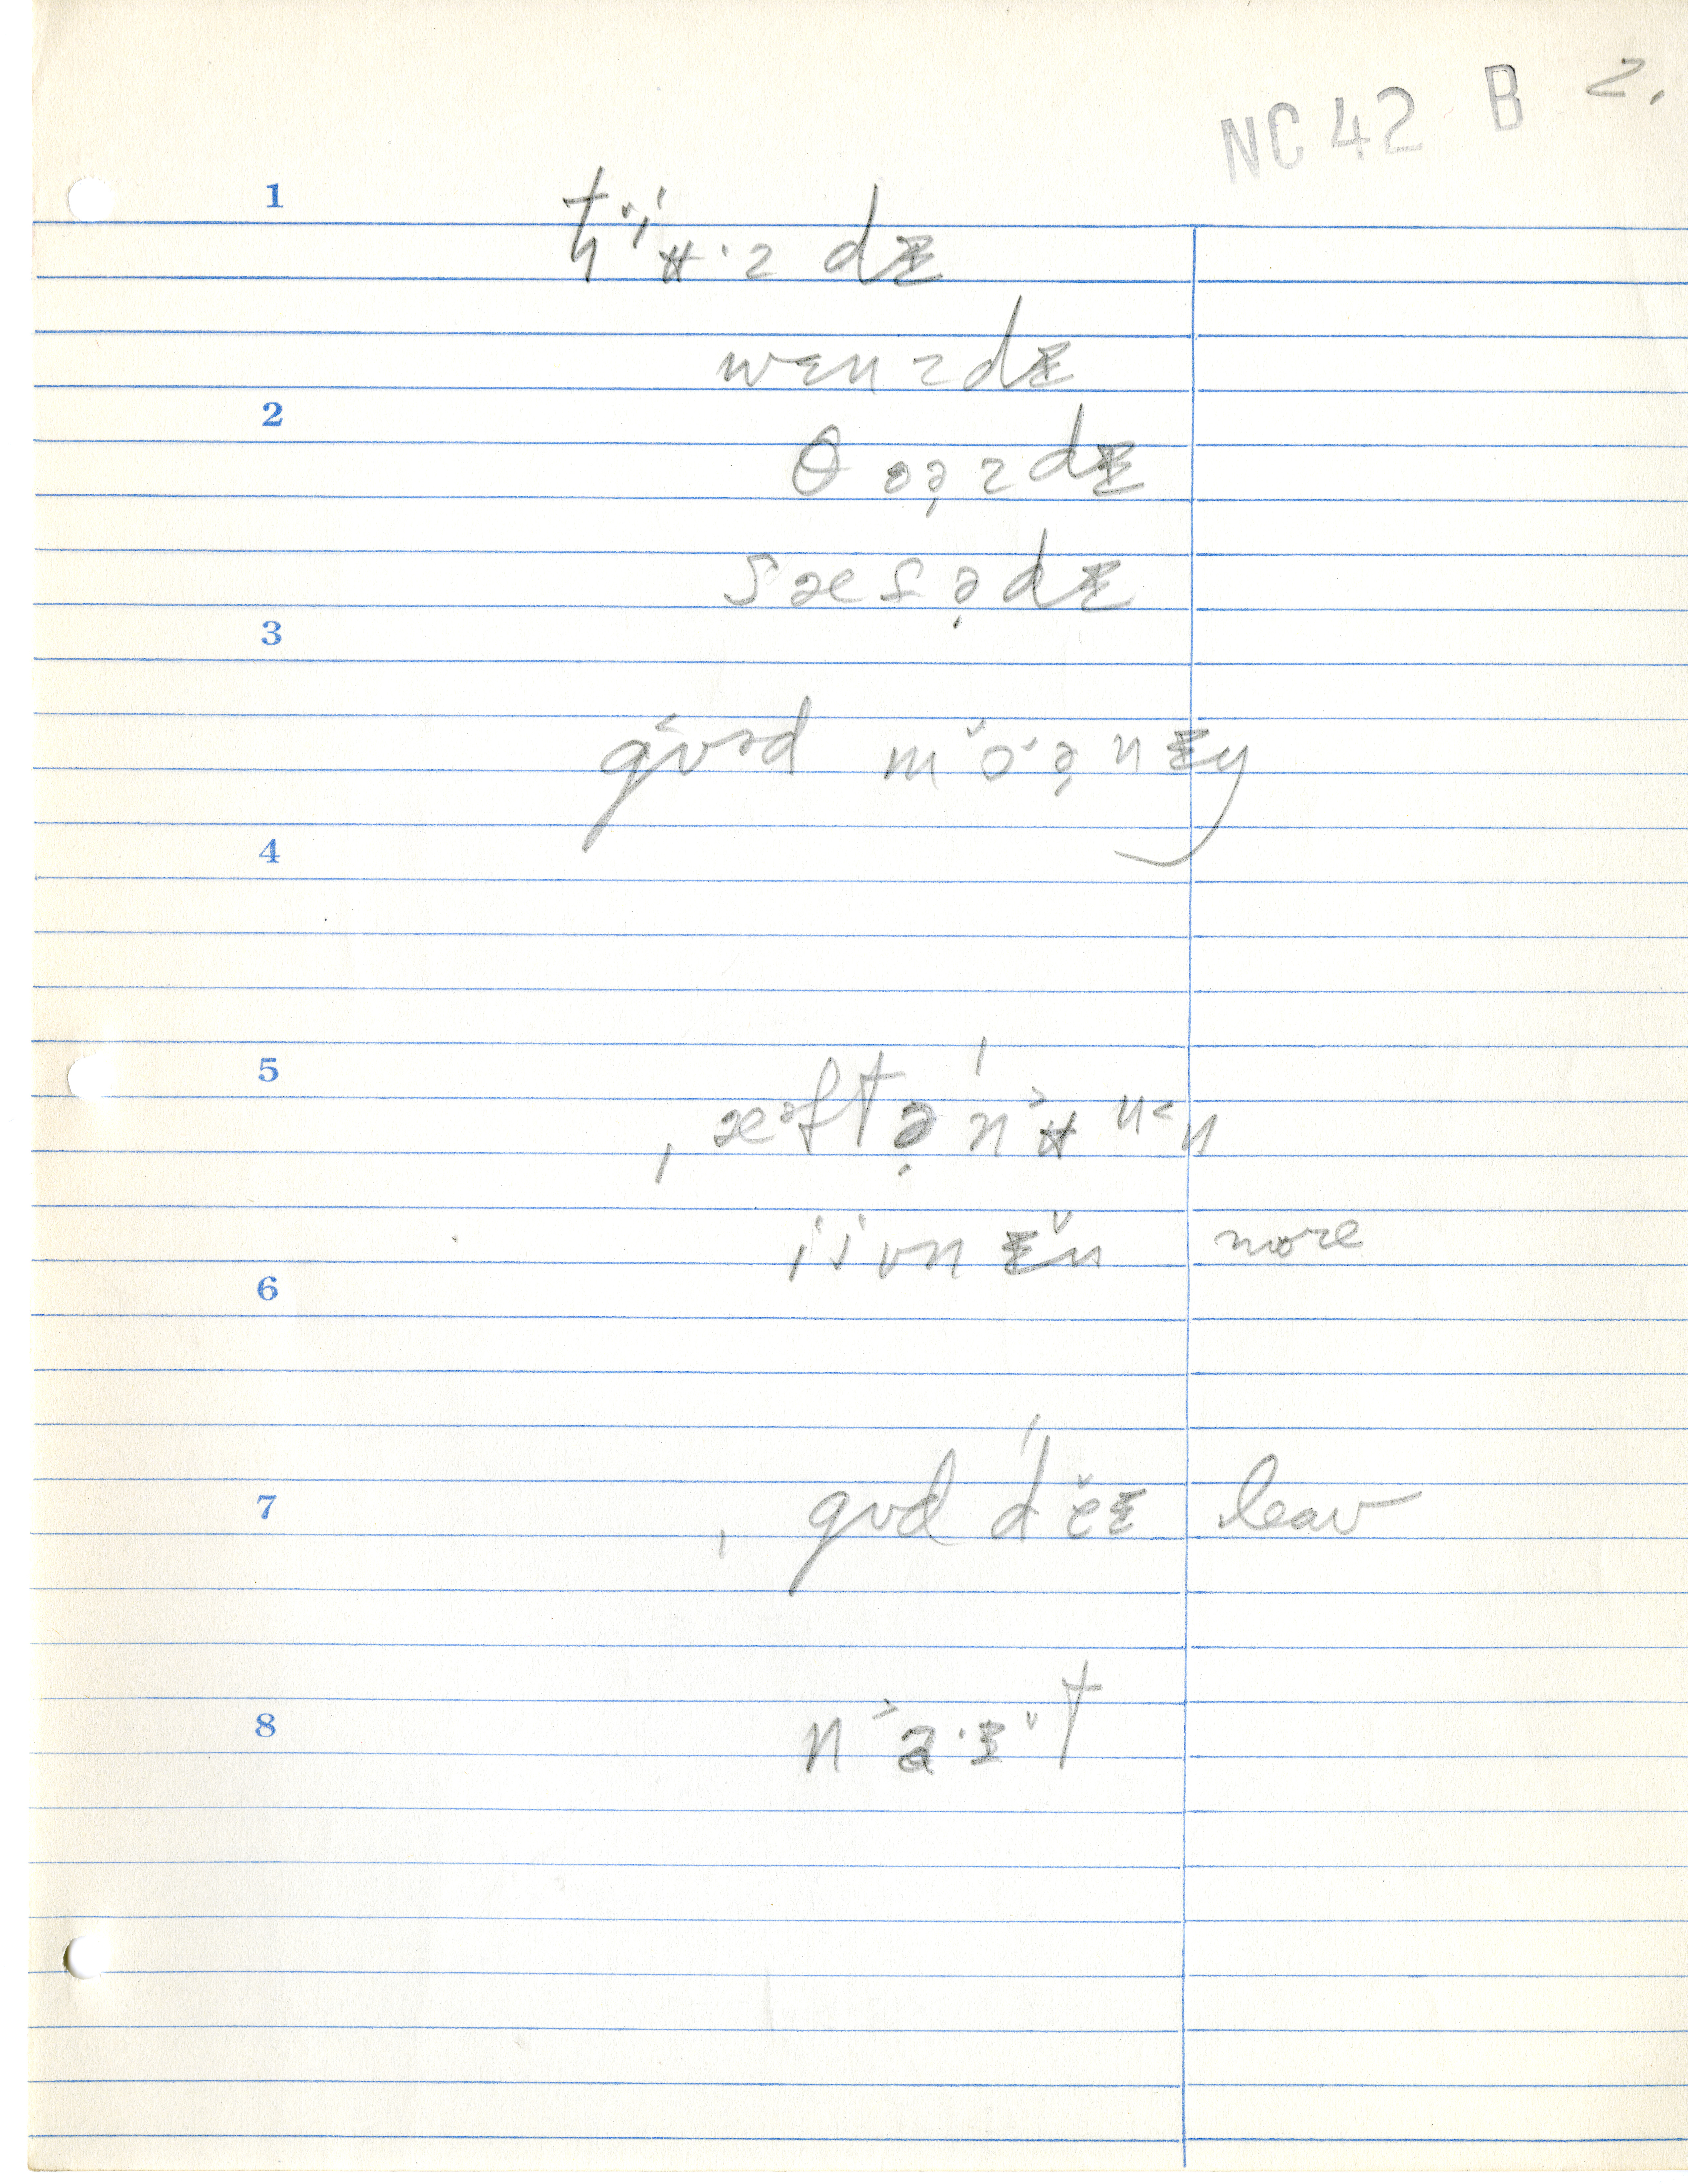 NC 42 B 2.
1
tʲʉ·zdɪ
wɛnzdɪ
2
θɔə̣zdɪ
sæsə̣dɪ
3
gʊəd mɔə̣nɪŋ
4
5
ˌæᵊftə̣ˈnʉ˃n˂n
6
ijvnɪ̆n more
7
ˌgʊd ˈdĕɪ leav
8
n˃a·ɪ̆t